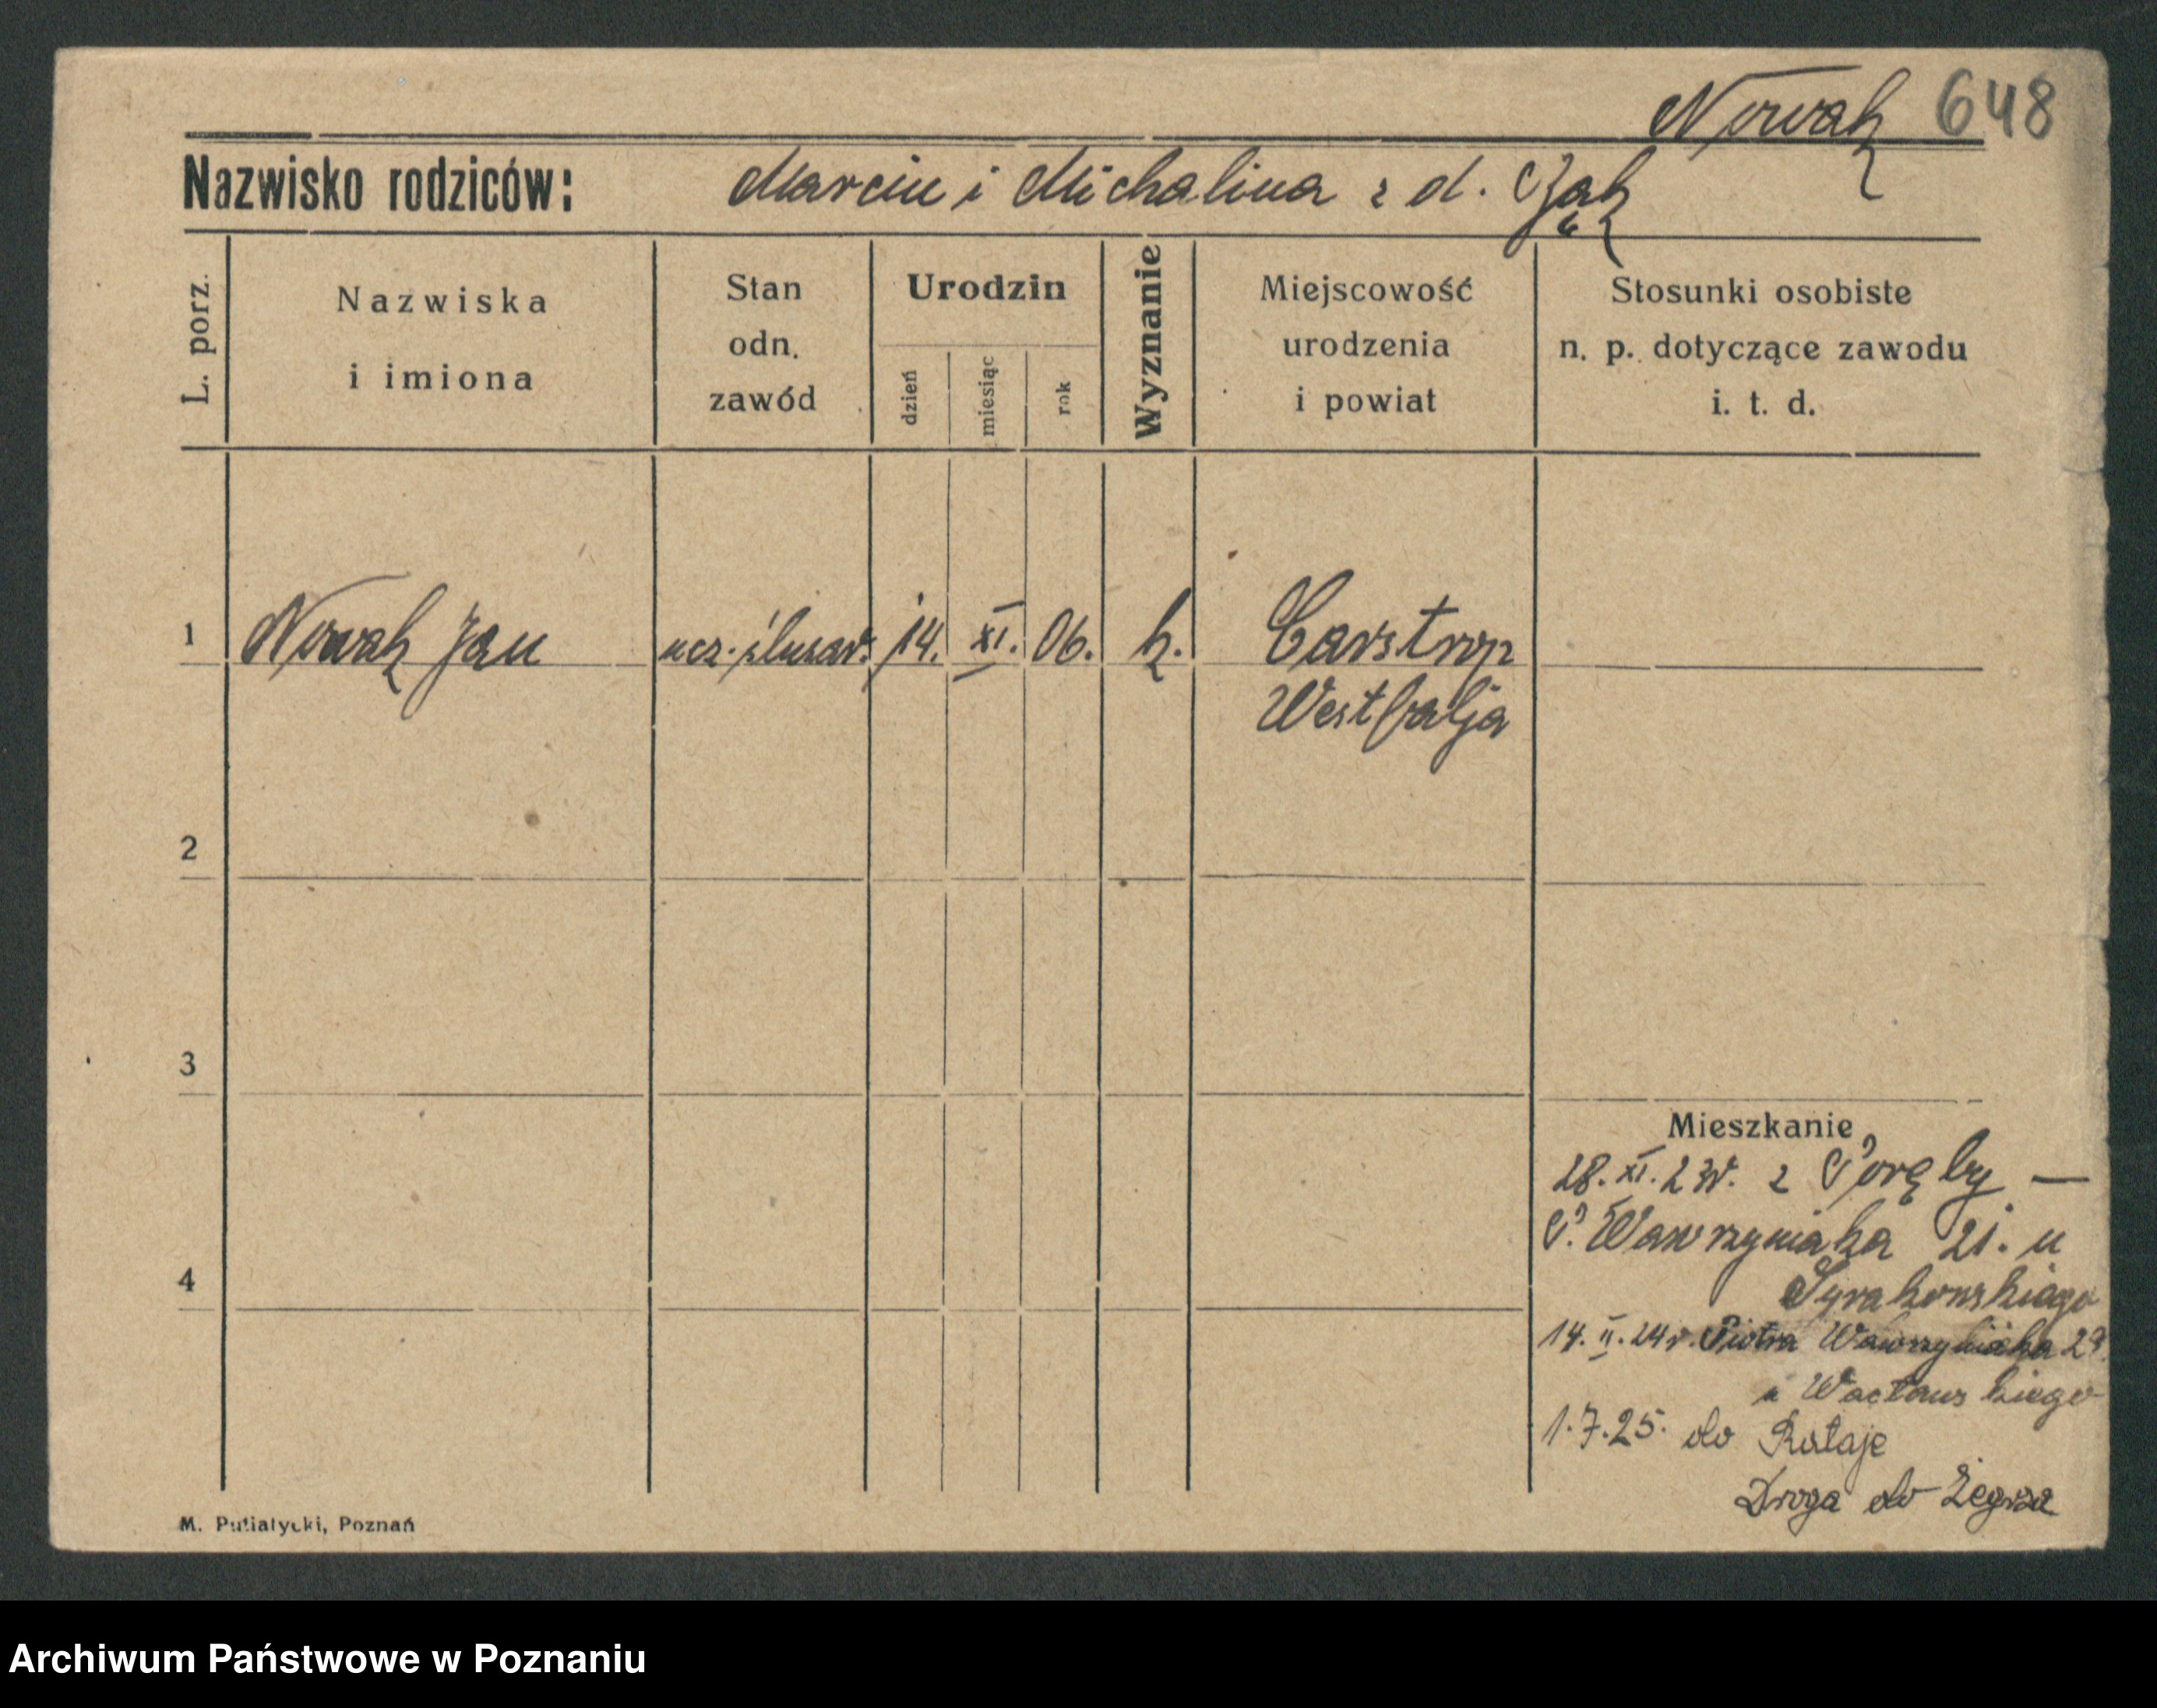 Nowak 648
Nazwisko rodziców: Marcin i Michalina z d. Jąk
L. porz.
Nazwiska
i imiona
Stan
odn.
zawód
Urodzin
dzień
miesiąc
rok
Wyznanie
Miejscowość
urodzenia
i powiat
Stosunki osobiste
n. p. dotyczące zawodu
i. t. d.
1 Nowak Jan ucz. ślusar. 14. XI. 06. k. Carstrop
Westfalja
2
3
4
Mieszkanie
28. XI. 23r. z Poręby —
P. Wawrzyniaka 21. u
14. II. 24r. Piotra Wawrzyniaka
u Wacławskiego
1.7.25. do Rataje
Droga do Żegrza
M. Putiatycki, Poznań
Archiwum Państwowe w Poznaniu